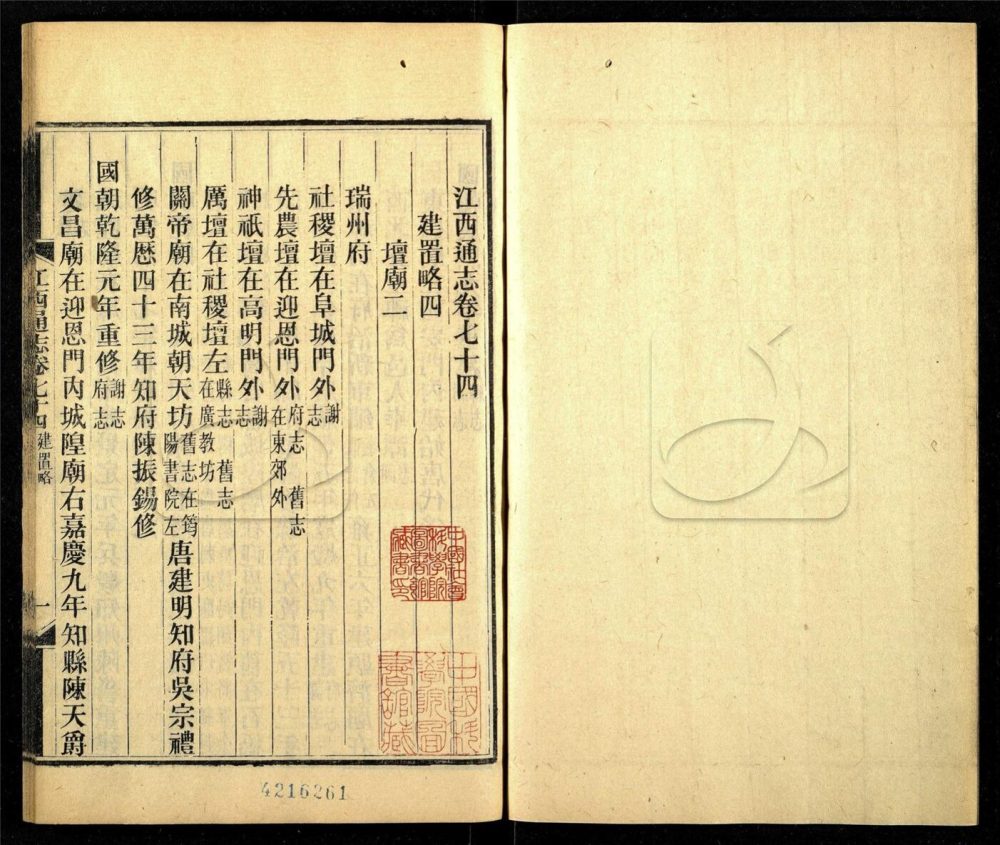 江西通志卷七十四
建置略四
壇廟二
瑞州府
社稷壇在阜城門外謝志
先農壇在迎恩門外府志 舊志在東郊外
神祇壇在高明門外謝志
厲壇在社稷壇左縣志 舊志在廣教坊
關帝廟在南城朝天坊舊志在筠陽書院左唐建明知府吳宗禮
修萬歷四十三年知府陳振錫修
國朝乾隆元年重修謝志府志
文昌廟在迎恩門内城隍廟右嘉慶九年知縣陳天爵
江西通志卷七十四 建置略 一
中國社會
科學院
圖書館
藏書印
中國科
學院圖
書館藏
4216261